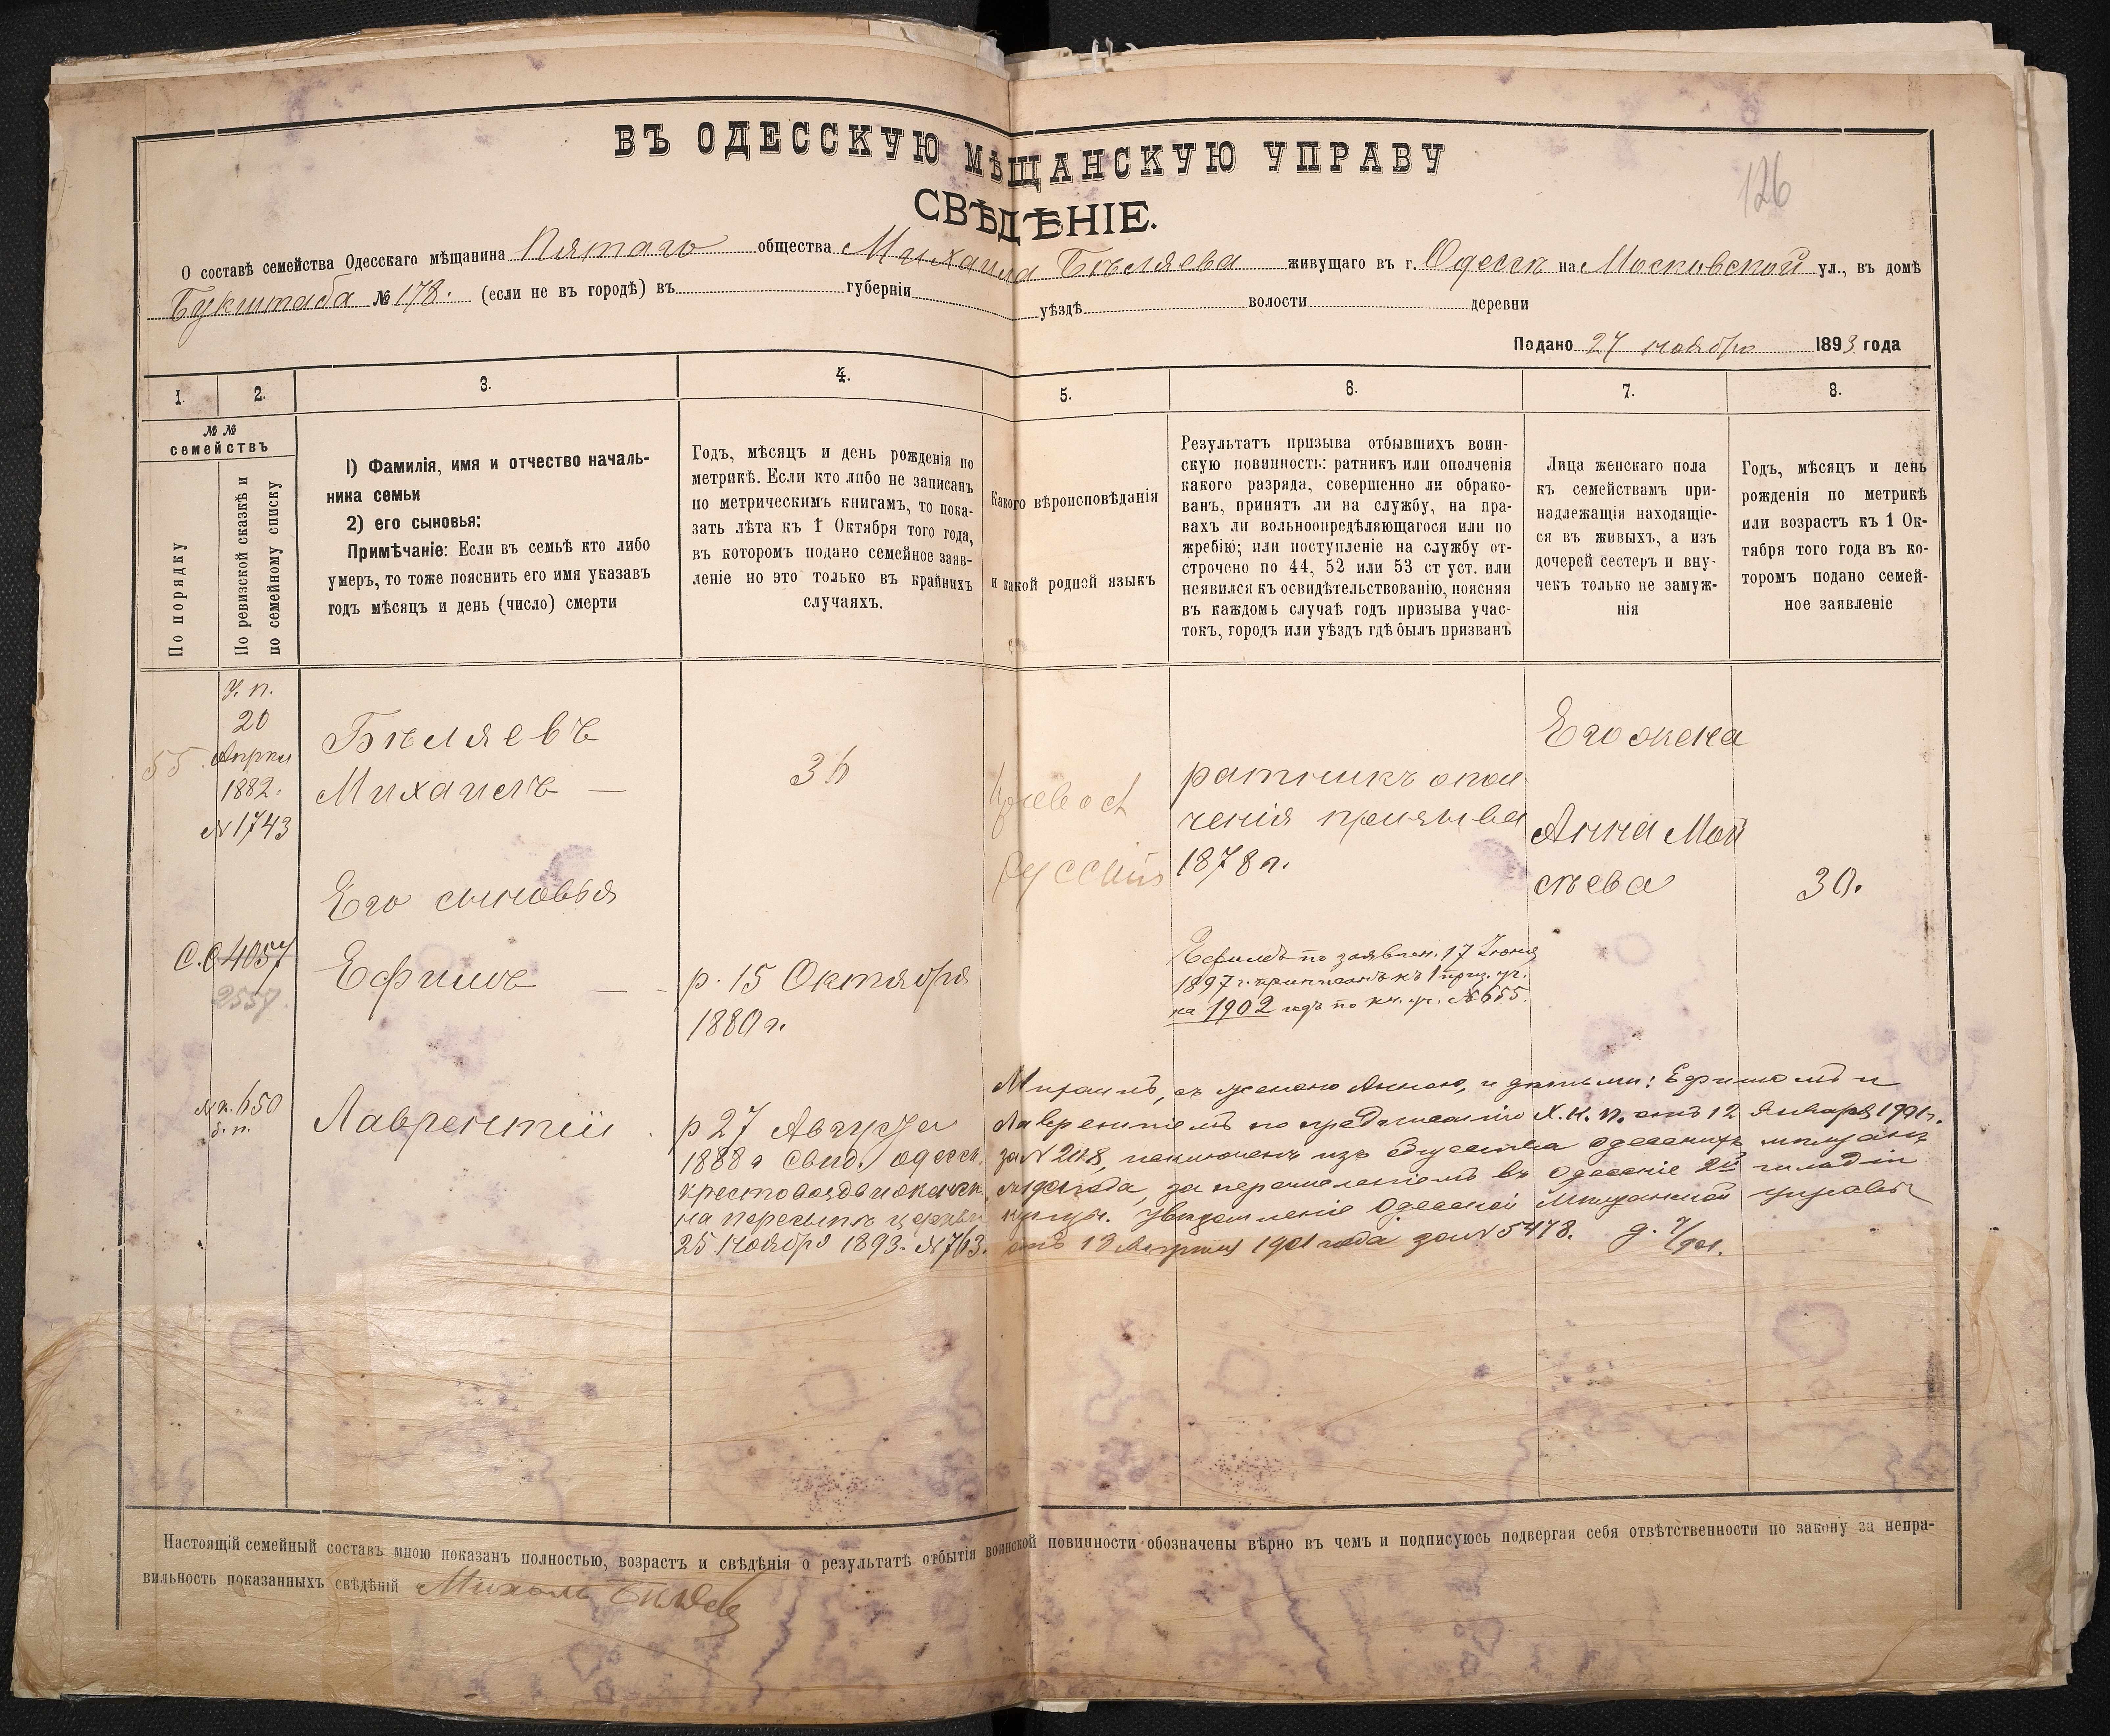 ВЪ ОДЕССКУЮ МѢЩАНСКУЮ УПРАВУ
126
СВѢДѢНІЕ.
О составѣ семейства Одесскаго мѣщанина Пятаго общества Михаила Бѣляева живущаго въ г. Одессѣ на Московской ул., въ домѣ
Букштаба № 178. (если не въ городѣ) въ губерніи уѣздѣ волости деревни
Подано 27 ноября 1893 года
1. 2. 3. 4. 5. 6. 7. 8.
№ №
семействъ
По порядку
По ревизской сказкѣ и
по семейному списку
1) Фамилія, имя и отчество началь-
ника семьи
2) его сыновья:
Примѣчаніе: Если въ семьѣ кто либо
умеръ, то тоже пояснить его имя указавъ
годъ мѣсяцъ и день (число) смерти
Годъ, мѣсяцъ и день рожденія по
метрикѣ. Если кто либо не записанъ
по метрическимъ книгамъ, то пока-
зать лѣта къ 1 Октября того года,
въ которомъ подано семейное заяв-
леніе но это только въ крайнихъ
случаяхъ.
Какого вѣроисповѣданія
и какой родной языкъ
Результатъ призыва отбывшихъ воин-
скую повинность: ратникъ или ополченія
какого разряда, совершенно ли обрако-
ванъ, принятъ ли на службу, на пра-
вахъ ли вольноопредѣляющагося или по
жребію; или поступленіе на службу от-
строчено по 44, 52 или 53 ст уст. или
неявился къ освидѣтельствованію, поясняя
въ каждомъ случаѣ годъ призыва учас-
токъ, городъ или уѣздъ гдѣ былъ призванъ
Лица женскаго пола
къ семействамъ при-
надлежащія находящіе-
ся въ живыхъ, а изъ
дочерей сестеръ и вну-
чекъ только не замуж-
нія
Годъ, мѣсяцъ и день
рожденія по метрикѣ
или возрастъ къ 1 Ок-
тября того года въ ко-
торомъ подано семей-
ное заявленіе
55
У. п.
20
Апрѣл
1882.
№ 1743
Бѣляевъ
Михаилъ —
Правосл
русскій
ратникъ опол
ченія призыва
1878 г.
Его жена
Анна Мой
сѣева
30.
Его сыновья
С.С. 4057
2557.
Ефимъ —
р. 15 Октября
1880 г.
Ефимъ по заявлен. 17 Іюня
1897 г. приписанъ къ 1 приз. уч.
на 1902 годъ по кн. уч. № 655.
650
Лаврентій
р 27 Августа
1888 г свид. одесск.
крестовоздвиженск.
на пересыпи церкви
25 ноября 1893. № 763.
съ женою Анною, и дѣтьми: Ефимомъ и
Лаврентіемъ по предписанію Х. К. П. отъ 12 Января 1901 г.
исключенъ изъ общества одесскихъ мѣщанъ
1901 года, за перечисленіемъ въ Одесскіе 2й гильдіи
купцы. Увѣдомленіе Одесской Мѣщанской управы
отъ 18 Апрѣля 1901 года за № 5478.
Настоящій семейный составъ мною показанъ полностью, возрастъ и свѣдѣнія о результатѣ отбытія воинской повинности обозначены вѣрно въ чемъ и подписуюсь подвергая себя отвѣтственности по закону за непра-
вильность показанныхъ свѣдѣній Михаилъ Бѣляев